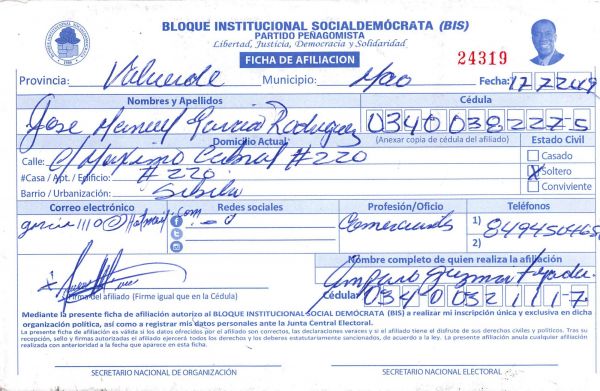 BLOQUE INSTITUCIONAL SOCIALDEMÓCRATA (BIS)
PARTIDO PEÑAGOMISTA
Libertad, Justicia, Democracia y Solidaridad
FICHA DE AFILIACION
24319
Provincia: Valverde Municipio: Mao Fecha: 17 7 2019
Nombres y Apellidos Cédula
Jose Manuel Garcia Rodriguez 03400382275
Domicilio Actual (Anexar copia de cédula del afiliado) Estado Civil
Calle: C/ Maximo Cabral #220 Casado
#Casa / Apt. / Edificio: #220 X Soltero
Barrio / Urbanización: Sibila Conviviente
Correo electrónico Redes sociales Profesión/Oficio Teléfonos
garcia1110@hotmail.com Comerciante 1)
2)
Nombre completo de quien realiza la afiliación
Amparo Guzman
Firma del afiliado (Firme igual que en la Cédula) Cédula: 03400321117
Mediante la presente ficha de afiliación autorizo al BLOQUE INSTITUCIONAL SOCIAL DEMÓCRATA (BIS) a realizar mi inscripción única y exclusiva en dicha
organización política, así como a registrar mis datos personales ante la Junta Central Electoral.
La presente ficha de afiliación es válida si los datos ofrecidos por el afiliado son correctos, las declaraciones veraces y si el afiliado tiene el disfrute de sus derechos civiles y políticos. Tras su
recepción, sello y firmas autorizadas el afiliado ejercerá todos los derechos y le deberes estatutariamente señalados, de acuerdo a la ley. La presente afiliación anula cualquier afiliación
realizada con anterioridad a la fecha que aparece en esta ficha.
SECRETARIO NACIONAL DE ORGANIZACIÓN SECRETARIO NACIONAL ELECTORAL